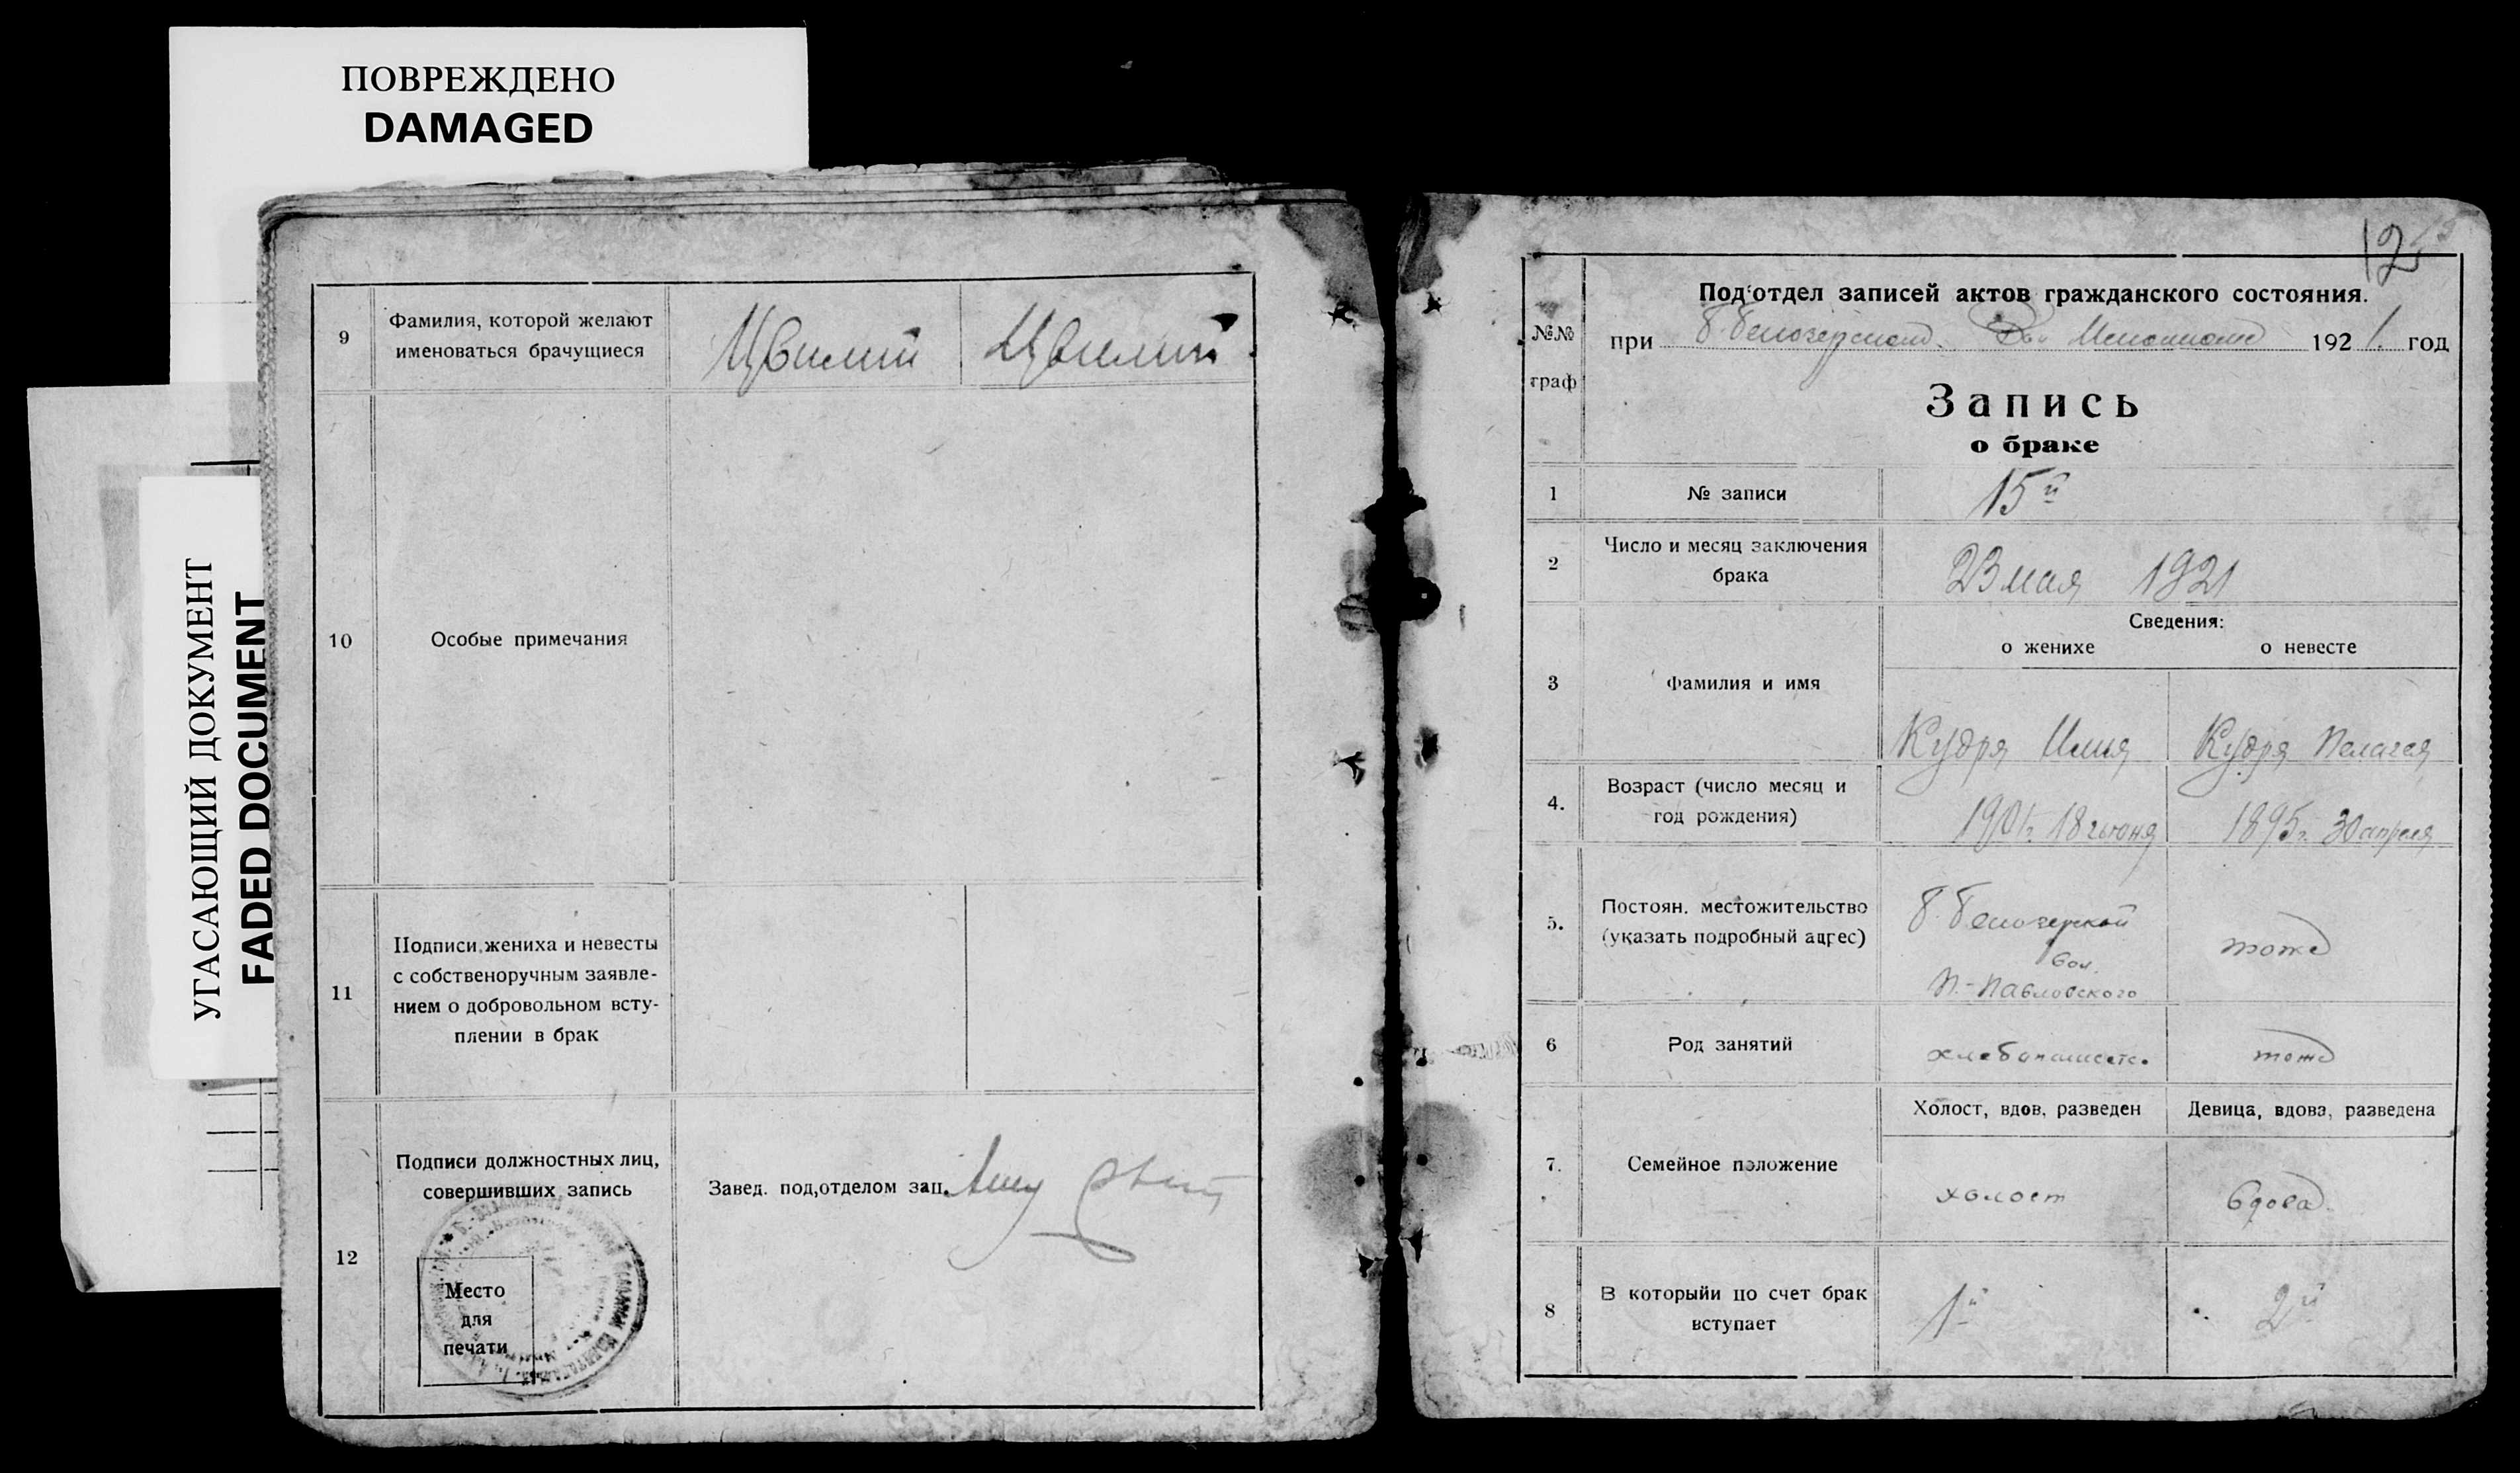 ПОВРЕЖДЕНО
DAMAGED
УГАСАЮЩИЙ ДОКУМЕНТ
FADED DOCUMENT
9
Фамилия, которой желают
именоваться брачущиеся
Цвилий
Цвилий
10
Особые примечания
11
Подписи жениха и невесты
с собственоручным заявле-
нием о добровольном всту-
плении в брак
12
Подписи должностных лиц,
совершивших запись
Место
для
печати
Завед. под,отделом зап.
12
№№
граф
Под'отдел записей актов гражданского состояния.
при Б. Белозерском 1921. год
Запись
о браке
1
№ записи
15й
2
Число и месяц заключения
брака
23 мая 1921
Сведения:
о женихе
о невесте
3
Фамилия и имя
Кудря Илья
Кудря Пелагея
4.
Возраст (число месяц и
год рождения)
1901г. 18 июня
1895г. 30 апреля
5.
Постоян. местожительство
(указать подробный адрес)
Б. Белозерской
вол.
П.-Павловского
тоже
6
Род занятий
тоже
7.
Семейное положение
Холост, вдов, разведен
Девица, вдова, разведена
холост
вдова
8
В которыйи по счет брак
вступает
1й
2й